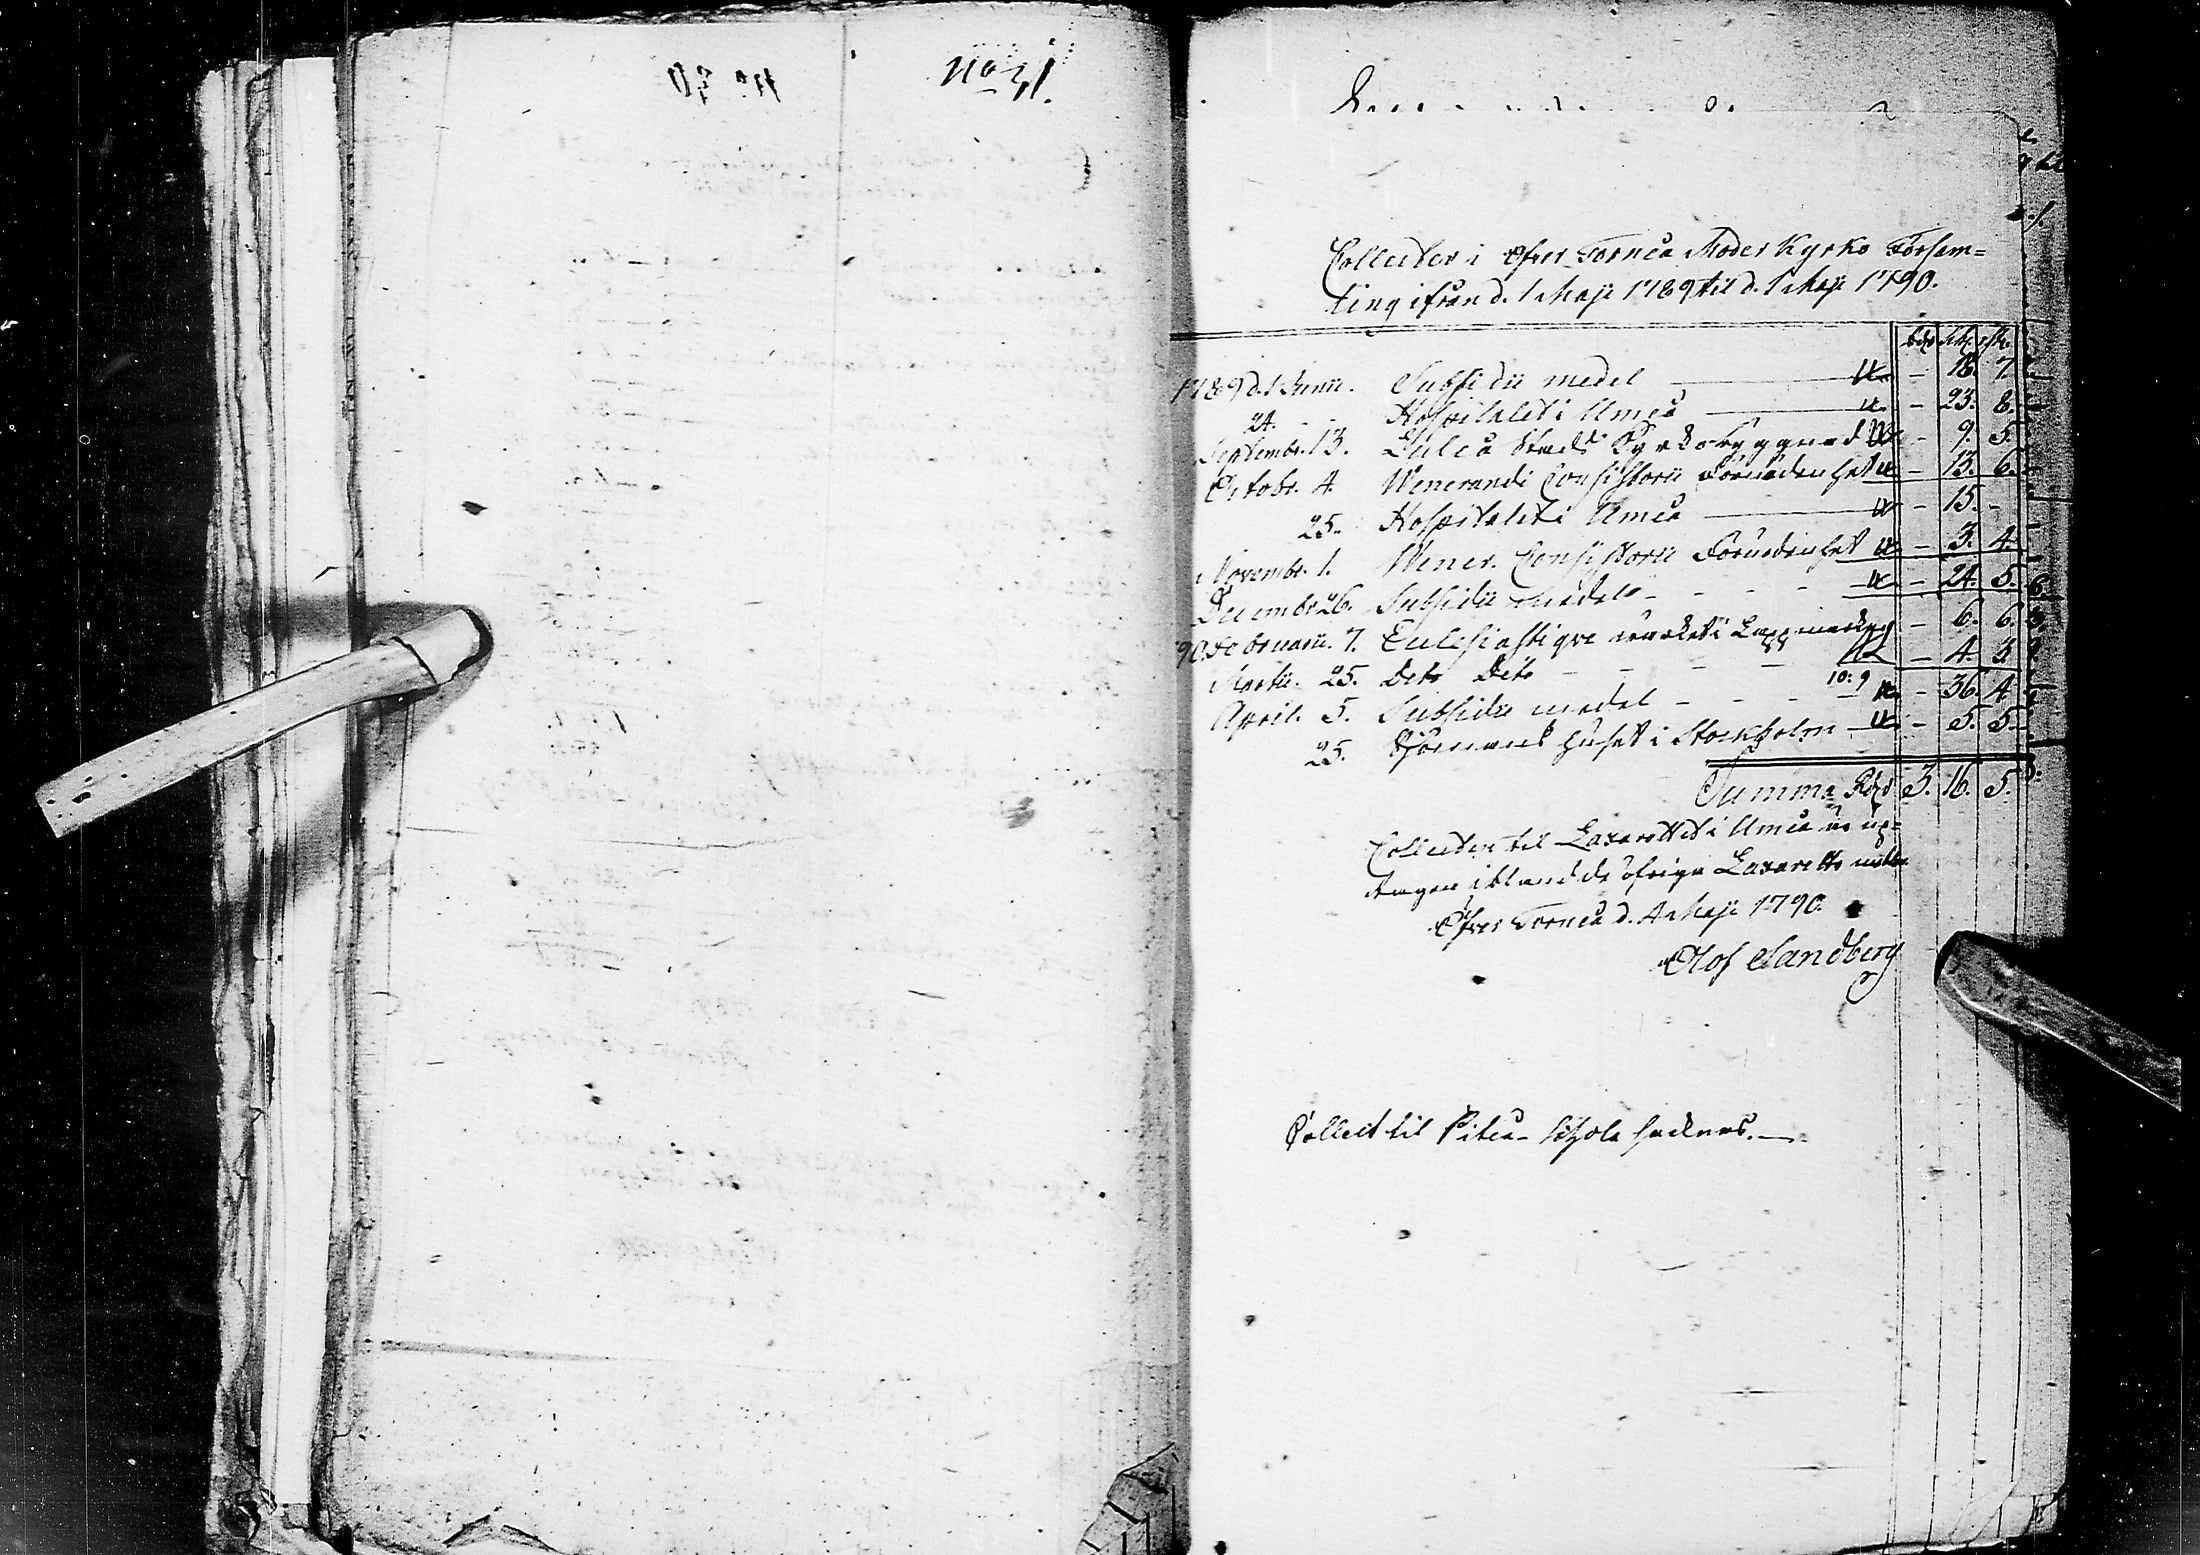 No 31.
Collecter i Öfver Torneå Moder Kyrko Försam=
ling ifrån d. 1 Maji 1789 til d. 1 Maji 1790.
Rdr Sk. rst.
1789 d. 1 Junii. Subsidii medel — — 18. 7.
24. - Hospitalet i Umeå — — 23. 8.
Septembr. 13. Luleå Stads Kyrkobyggnad — 9. 5.
Octobr. 4. Wenerandi Consistorii Förnödenhet — 13. 6.
25. Hospitalet i Umeå — — 15. -
Novembr. 1. Wener. Consistorii Förnödenhet — 3. 4.
Decembr 26. Subsidii medel - - - - — 24. 5.
90. Februarii. 7. Ecclesiastique wärcket i Lappmarken — 6. 6.
Martii. 25. Dito Dito - - - — 4. 3
10: 9
April. 5. Subsidii medel - - - — 36. 4
25. Sjömans Huset i Stockholm — — 5. 5.
Summa Rdr 3. 16. 5.
Collecten til Lazarettet i Umeå är up=
tagen ibland de öfriga Lazaretts medlen
Öfver Torneå d. 4 Maji 1790.
Olof Sandberg
Collect til Piteå Schola saknas. —